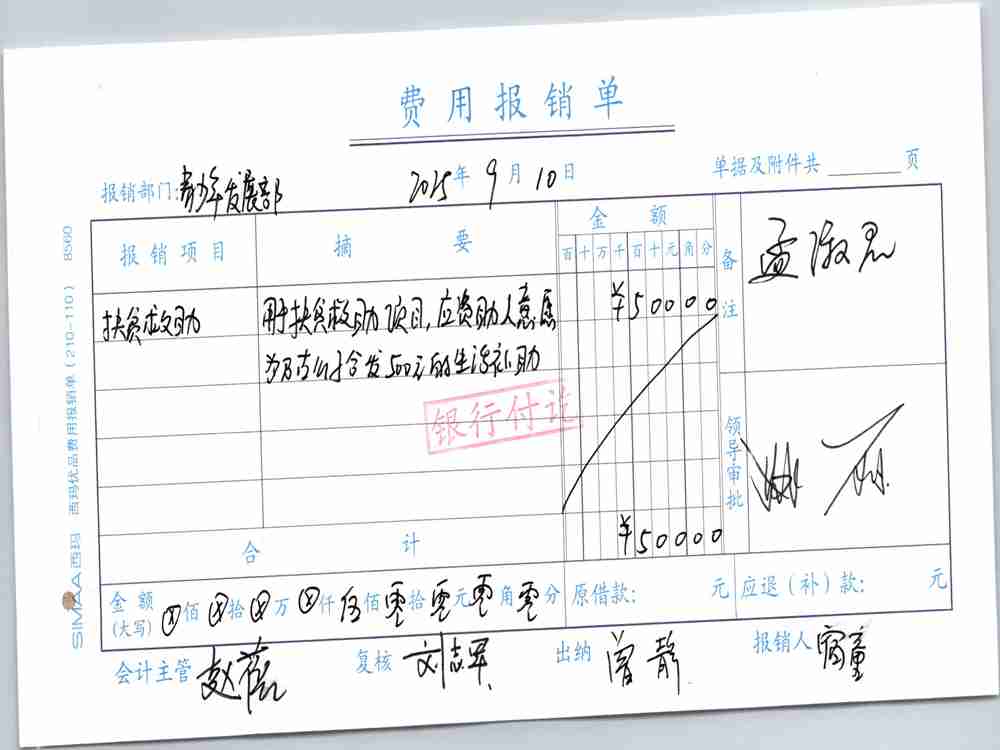 费用报销单
报销部门:青少年发展部 2025年9月10日 单据及附件共 页
报销项目 摘要 金额 备注 孟淑思
百十万千百十元角分
扶贫救助 用于扶贫救助项目,应资助人意愿 ¥50000
发500元的生活补助
银行付讫
领导审批
合计 ¥50000
金额(大写) ⊗佰⊗拾⊗万⊗仟伍佰零拾零元零角零分 原借款: 元 应退(补)款: 元
会计主管 赵蓓 复核 刘志军 出纳 曾静 报销人 窦童
SIMAA西玛 西玛优品费用报销单(210-110) 8S60